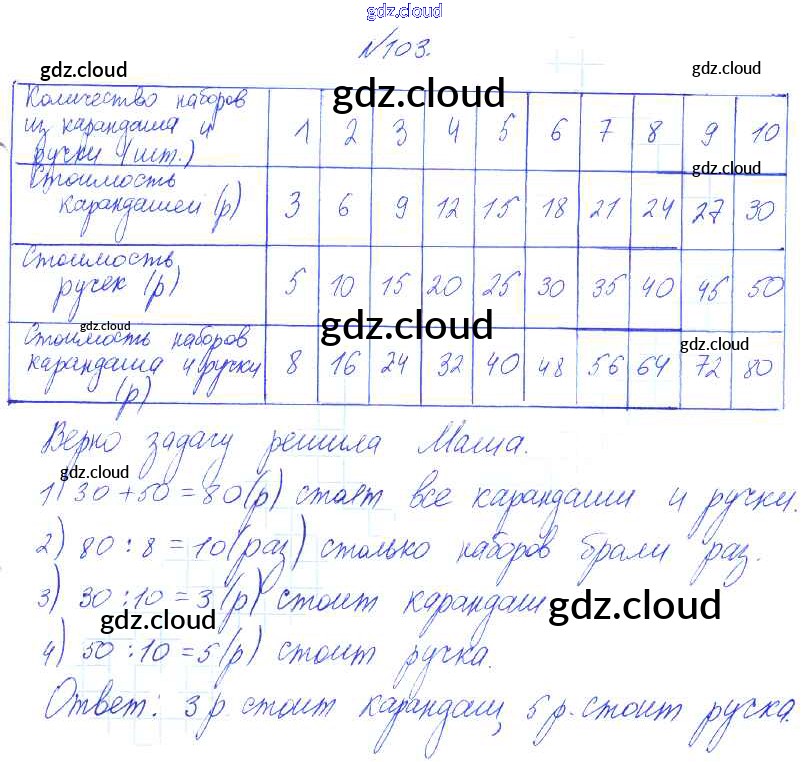 gdz.cloud
№103.
gdz.cloud gdz.cloud gdz.cloud
Количество наборов из карандаша и ручки (шт.) 1 2 3 4 5 6 7 8 9 10
gdz.cloud
Стоимость карандашей (р) 3 6 9 12 15 18 21 24 27 30
Стоимость ручек (р) 5 10 15 20 25 30 35 40 45 50
gdz.cloud gdz.cloud gdz.cloud
Стоимость наборов карандаша и ручки (р) 8 16 24 32 40 48 56 64 72 80
Верно задачу решила Маша.
gdz.cloud
1) 30 + 50 = 80 (р) стоят все карандаши и ручки.
2) 80 : 8 = 10 (раз) столько наборов брали раз.
3) 30 : 10 = 3 (р) стоит карандаш
gdz.cloud gdz.cloud
4) 50 : 10 = 5 (р) стоит ручка.
Ответ: 3 р. стоит карандаш, 5 р. стоит ручка.